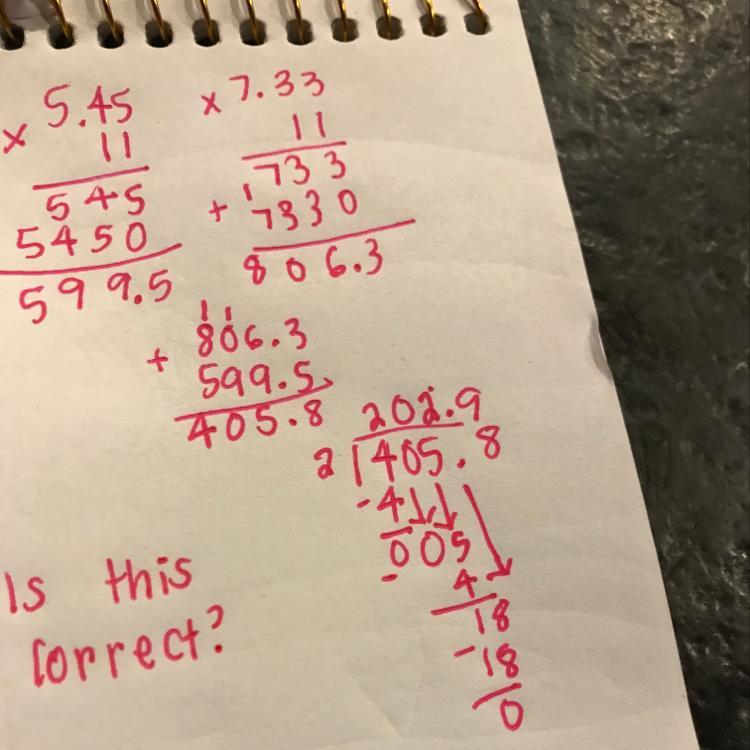 × 5.45
11
545
5450
599.5
× 7.33
11
1
733
+ 7330
806.3
11
806.3
+ 599.5
405.8
202.9
2 405.8
- 4
005
- 4
18
- 18
0
Is this
correct?